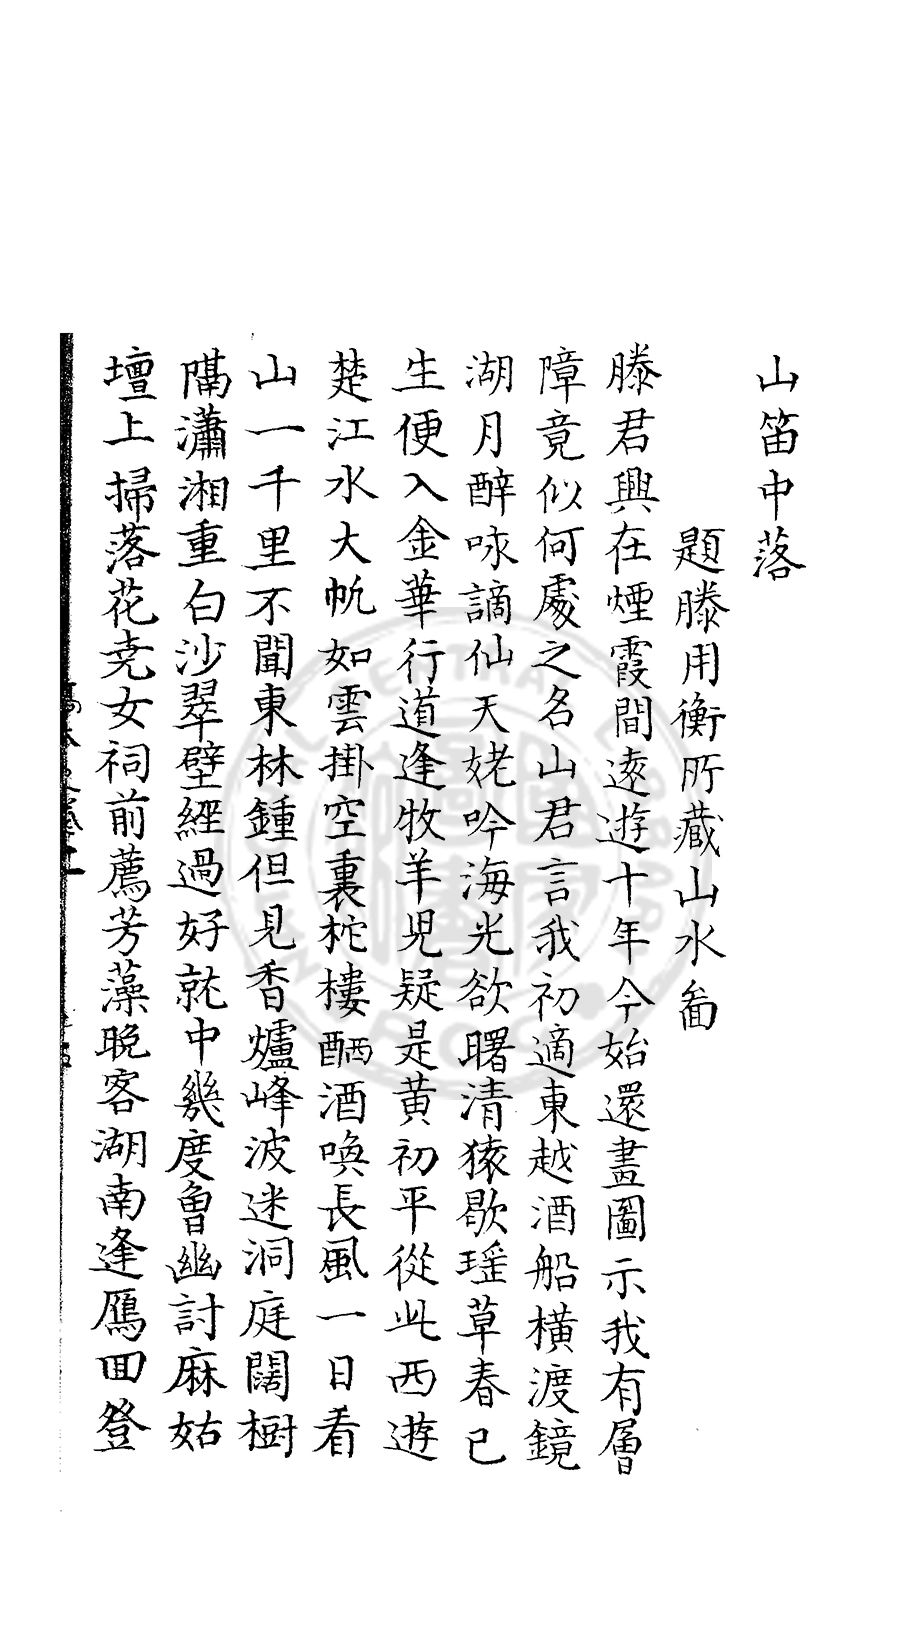 山笛中落
題滕用衡所藏山水啚
滕君興在煙霞間遠遊十年今始還畫圖示我有層
障竟似何處之名山君言我初適東越酒船橫渡鏡
湖月醉咏謫仙天姥吟海光欲曙清猿歇瑶草春已
生便入金華行道逢牧羊児疑是黄初平從此西遊
楚江水大帆如雲掛空裏柁樓酾酒喚長風一日看
山一千里不聞東林鍾但見香爐峰波迷洞庭闊樹
隔瀟湘重白沙翠壁經過好就中幾度曾幽討麻姑
壇上掃落花尭女祠前薦芳藻晚客湖南逢鴈回登